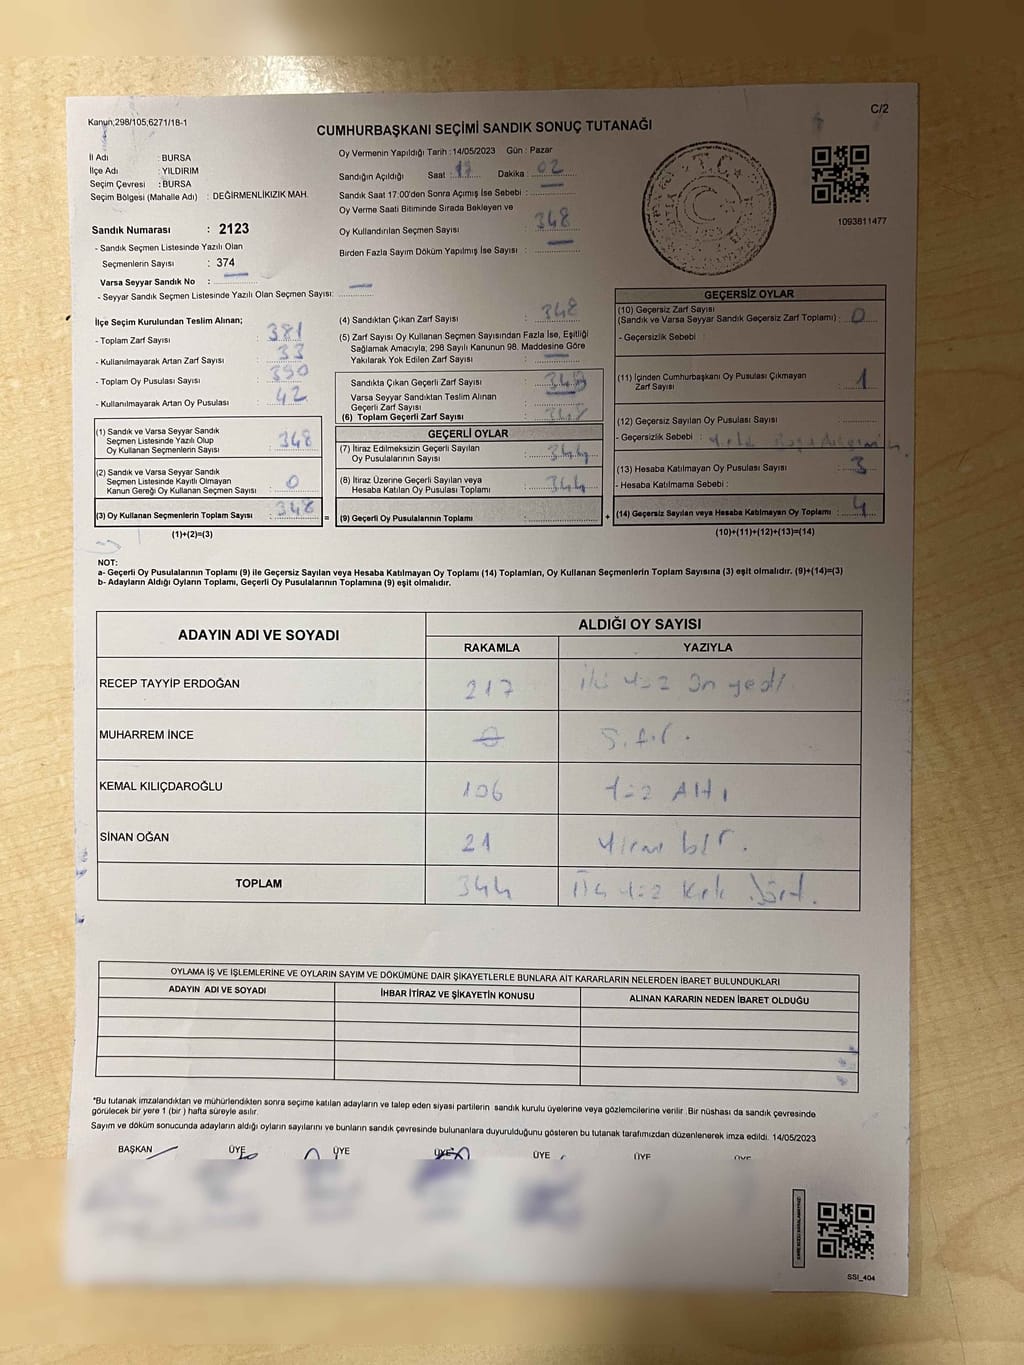 C/2
Kanun,298/105,6271/18-1
CUMHURBAŞKANI SEÇİMİ SANDIK SONUÇ TUTANAĞI
İl Adı : BURSA
İlçe Adı : YILDIRIM
Seçim Çevresi : BURSA
Seçim Bölgesi (Mahalle Adı) : DEĞİRMENLİKIZIK MAH.
Sandık Numarası : 2123
- Sandık Seçmen Listesinde Yazılı Olan
Seçmenlerin Sayısı : 374
Varsa Seyyar Sandık No : —
- Seyyar Sandık Seçmen Listesinde Yazılı Olan Seçmen Sayısı: —
Oy Vermenin Yapıldığı Tarih : 14/05/2023 Gün : Pazar
Sandığın Açıldığı Saat : 17 Dakika : 02
Sandık Saat 17:00'den Sonra Açımış İse Sebebi : —
Oy Verme Saati Bitiminde Sırada Bekleyen ve
Oy Kullandırılan Seçmen Sayısı : 348
Birden Fazla Sayım Döküm Yapılmış İse Sayısı : —
T.C.
1093811477
İlçe Seçim Kurulundan Teslim Alınan;
- Toplam Zarf Sayısı : 381
- Kullanılmayarak Artan Zarf Sayısı : 33
- Toplam Oy Pusulası Sayısı : 390
- Kullanılmayarak Artan Oy Pusulası : 42
(1) Sandık ve Varsa Seyyar Sandık
Seçmen Listesinde Yazılı Olup
Oy Kullanan Seçmenlerin Sayısı : 348
(2) Sandık ve Varsa Seyyar Sandık
Seçmen Listesinde Kayıtlı Olmayan
Kanun Gereği Oy Kullanan Seçmen Sayısı : 0
(3) Oy Kullanan Seçmenlerin Toplam Sayısı : 348
(1)+(2)=(3)
(4) Sandıktan Çıkan Zarf Sayısı : 348
(5) Zarf Sayısı Oy Kullanan Seçmen Sayısından Fazla İse, Eşitliği
Sağlamak Amacıyla; 298 Sayılı Kanunun 98. Maddesine Göre
Yakılarak Yok Edilen Zarf Sayısı : —
Sandıkta Çıkan Geçerli Zarf Sayısı : 348
Varsa Seyyar Sandıktan Teslim Alınan
Geçerli Zarf Sayısı :
(6) Toplam Geçerli Zarf Sayısı : 348
GEÇERLİ OYLAR
(7) İtiraz Edilmeksizin Geçerli Sayılan
Oy Pusulalarının Sayısı : 344
(8) İtiraz Üzerine Geçerli Sayılan veya
Hesaba Katılan Oy Pusulası Toplamı : 344
= (9) Geçerli Oy Pusulalarının Toplamı :
GEÇERSİZ OYLAR
(10) Geçersiz Zarf Sayısı
(Sandık ve Varsa Seyyar Sandık Geçersiz Zarf Toplamı) : 0
- Geçersizlik Sebebi :
(11) İçinden Cumhurbaşkanı Oy Pusulası Çıkmayan
Zarf Sayısı : 1
(12) Geçersiz Sayılan Oy Pusulası Sayısı :
- Geçersizlik Sebebi :
(13) Hesaba Katılmayan Oy Pusulası Sayısı : 3
- Hesaba Katılmama Sebebi :
+ (14) Geçersiz Sayılan veya Hesaba Katılmayan Oy Toplamı : 4
(10)+(11)+(12)+(13)=(14)
NOT:
a- Geçerli Oy Pusulalarının Toplamı (9) ile Geçersiz Sayılan veya Hesaba Katılmayan Oy Toplamı (14) Toplamları, Oy Kullanan Seçmenlerin Toplam Sayısına (3) eşit olmalıdır. (9)+(14)=(3)
b- Adayların Aldığı Oyların Toplamı, Geçerli Oy Pusulalarının Toplamına (9) eşit olmalıdır.
ADAYIN ADI VE SOYADI ALDIĞI OY SAYISI
RAKAMLA YAZIYLA
RECEP TAYYİP ERDOĞAN 217 iki yüz on yedi
MUHARREM İNCE 0 Sıfır.
KEMAL KILIÇDAROĞLU 106 Yüz Altı
SİNAN OĞAN 21 Yirmi bir.
TOPLAM 344 Üç yüz kırk dört.
OYLAMA İŞ VE İŞLEMLERİNE VE OYLARIN SAYIM VE DÖKÜMÜNE DAİR ŞİKAYETLERLE BUNLARA AİT KARARLARIN NELERDEN İBARET BULUNDUKLARI
ADAYIN ADI VE SOYADI İHBAR İTİRAZ VE ŞİKAYETİN KONUSU ALINAN KARARIN NEDEN İBARET OLDUĞU
*Bu tutanak imzalandıktan ve mühürlendikten sonra seçime katılan adayların ve talep eden siyasi partilerin sandık kurulu üyelerine veya gözlemcilerine verilir .Bir nüshası da sandık çevresinde
görülecek bir yere 1 (bir ) hafta süreyle asılır.
Sayım ve döküm sonucunda adayların aldığı oyların sayılarını ve bunların sandık çevresinde bulunanlara duyurulduğunu gösteren bu tutanak tarafımızdan düzenlenerek imza edildi. 14/05/2023
BAŞKAN ÜYE ÜYE ÜYE ÜYE ÜYE ÜYE
SSI_404